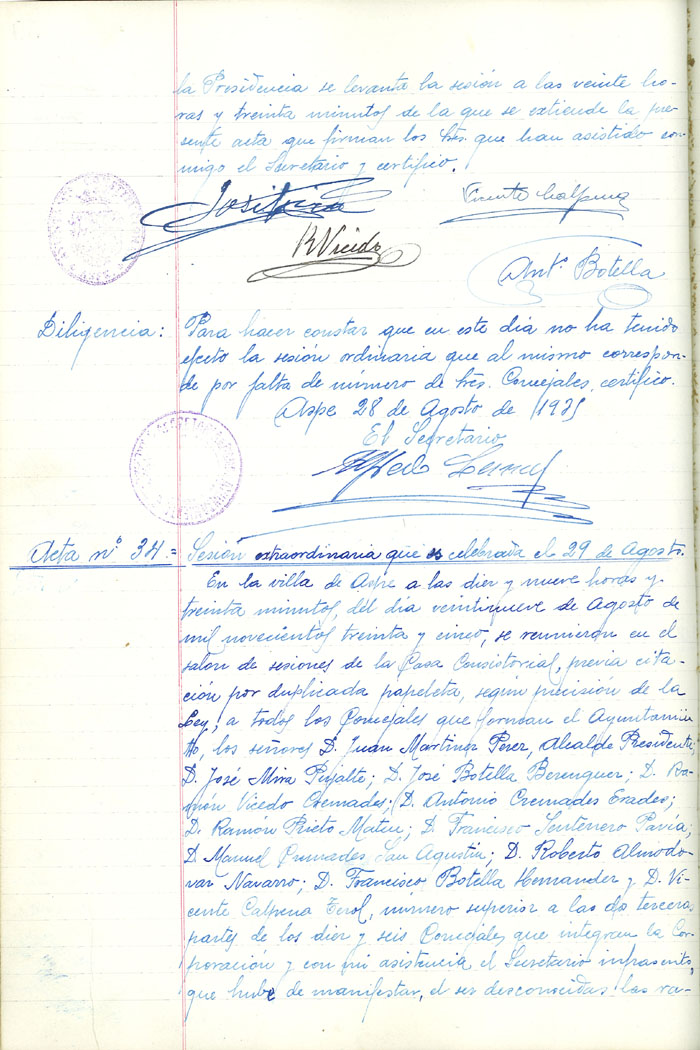 la Presidencia se levanta la sesión a las veinte ho-
ras y treinta minutos de la que se extiende la pre-
sente acta que firman los Sres. que han asistido con-
migo el Secretario y certifico.
José Mira
Vicente Calpena
R Vicedo
Antº Botella
Diligencia: Para hacer constar que en este dia no ha tenido
efecto la sesión ordinaria que al mismo correspon-
de por falta de número de Sres. Concejales, certifico.
Aspe 28 de Agosto de 1935
El Secretario
Alfredo
Acta nº 34 = Sesión extraordinaria que es celebrada el 29 de Agosto.
En la villa de Aspe a las diez y nueve horas y
treinta minutos, del dia veintinueve de Agosto de
mil novecientos treinta y cinco, se reunieron en el
salon de sesiones de la Casa Consistorial, previa cita-
ción por duplicada papeleta, según precisión de la
Ley, a todos los Concejales que forman el Ayuntamien
to, los señores D. Juan Martinez Perez, Alcalde Presidente;
D. José Mira Pujalte; D. José Botella Berenguer; D. Ra-
món Vicedo Cremades; D. Antonio Cremades Erades;
D. Ramón Prieto Mateu; D. Francisco Sentenero Pavía;
D. Manuel Cremades San Agustin; D. Roberto Almodo-
var Navarro; D. Francisco Botella Hernandez y D. Vi-
cente Calpena Terol, número superior a las dos terceras
partes de los diez y seis Concejales que integran la Cor-
poración y con mi asistencia el Secretario infrascrito,
que hube de manifestar, el ser desconocidas las ra-